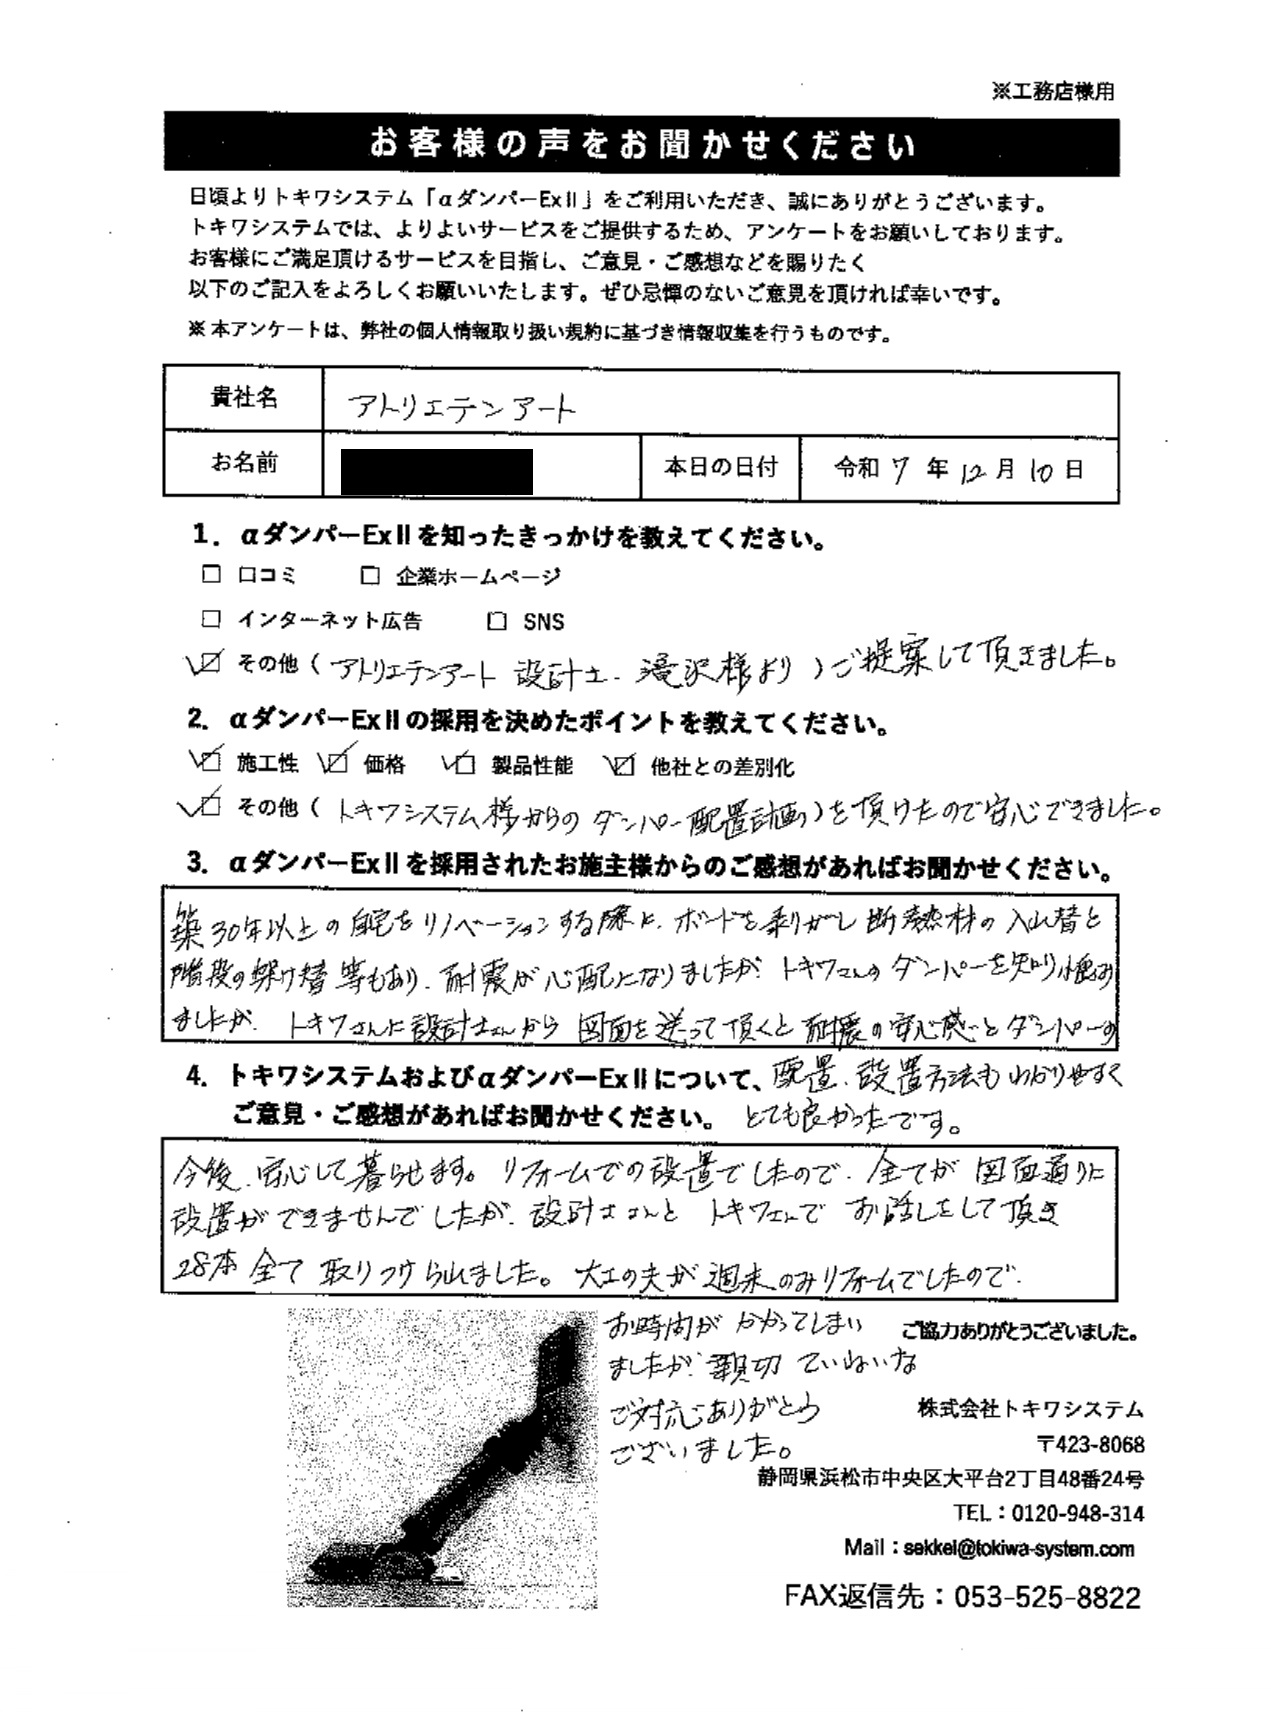 ※工務店様用
お客様の声をお聞かせください
日頃よりトキワシステム「αダンパーExⅡ」をご利用いただき、誠にありがとうございます。
トキワシステムでは、よりよいサービスをご提供するため、アンケートをお願いしております。
お客様にご満足頂けるサービスを目指し、ご意見・ご感想などを賜りたく
以下のご記入をよろしくお願いいたします。ぜひ忌憚のないご意見を頂ければ幸いです。
※本アンケートは、弊社の個人情報取り扱い規約に基づき情報収集を行うものです。
貴社名 アトリエテンアート
お名前 本日の日付 令和 7 年 12 月 10 日
1. αダンパーExⅡを知ったきっかけを教えてください。
□ 口コミ □ 企業ホームページ
□ インターネット広告 □ SNS
☑ その他 ( アトリエテンアート 設計士. 滝沢様より ) ご提案して頂きました。
2. αダンパーExⅡの採用を決めたポイントを教えてください。
☑ 施工性 ☑ 価格 ☑ 製品性能 ☑ 他社との差別化
☑ その他 ( トキワシステム様からの ダンパー配置計画 ) を頂けたので安心できました。
3. αダンパーExⅡを採用されたお施主様からのご感想があればお聞かせください。
築30年以上の自宅をリノベーションする際に、ボードを剥がし断熱材の入れ替と
階段の架け替等もあり、耐震が心配になりましたが、トキワさんのダンパーを知り悩み
ましたが、トキワさんに設計士さんから図面を送って頂くと耐震の安心感とダンパーの
配置、設置方法もわかりやすく
とても良かったです。
4. トキワシステムおよびαダンパーExⅡについて、
ご意見・ご感想があればお聞かせください。
今後、安心して暮らせます。リフォームでの設置でしたので、全てが図面通りに
設置ができませんでしたが、設計士さんと トキワさんで お話しをして頂き
28本 全て 取りつけられました。大工の夫が 週末のみリフォームでしたので、
お時間が かかってしまい
ましたが、親切 ていねいな
ご対応ありがとう
ございました。
ご協力ありがとうございました。
株式会社トキワシステム
〒423-8068
静岡県浜松市中央区大平台2丁目48番24号
TEL：0120-948-314
Mail：sekkei@tokiwa-system.com
FAX返信先：053-525-8822